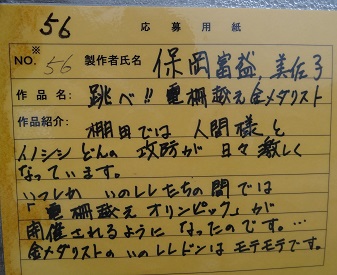 56
応募用紙
※
NO. 56 製作者氏名 保岡富益、美佐子
作品名: 跳べ!! 電柵越え金メダリスト
作品紹介: 棚田では 人間様と
イノシシどんの 攻防が 日々激しく
なっています。
いつしか いのししたちの間では
「電柵越え オリンピック」が
開催されるように なったのです。…
金メダリストの いのししドンは モテモテです。